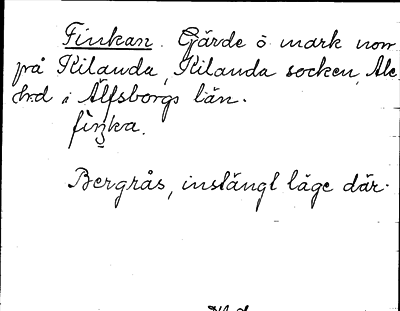 Finkan. Gärde o mark norr
på Kilanda, Kilanda socken, Ale
hd i Älfsborgs län.
fiŋka.
Bergrås, instängt läge där.